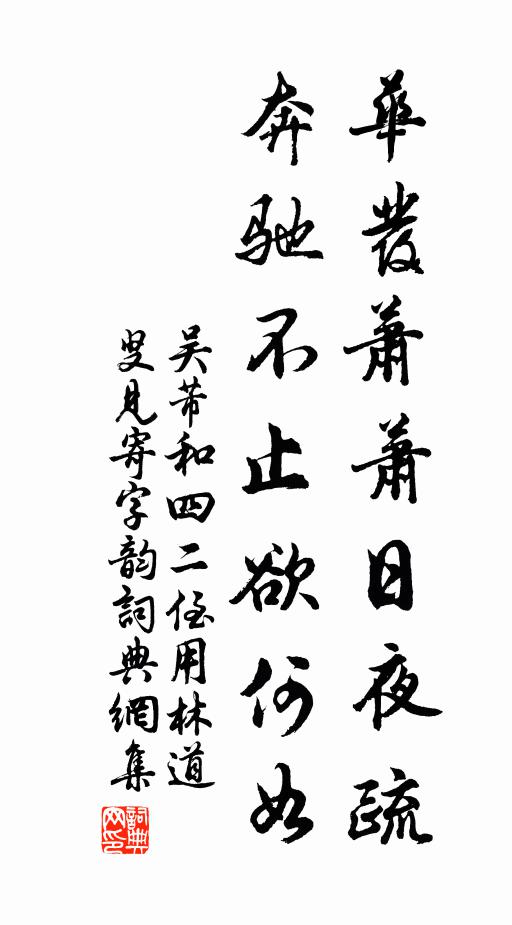 華發蕭蕭日夜疏
奔馳不止欲何如
吳芾和四二侄用林道
叟見寄字韵詞典網集
詞典網印